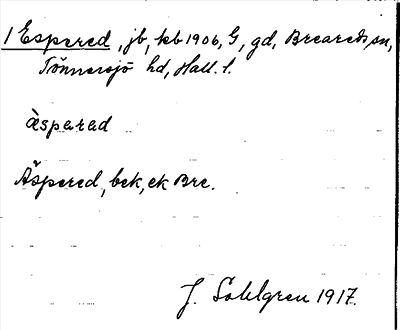 1 Espered, jb, kb 1906, G, gd, Breareds sn,
Tönnersjö hd, Hall. l.
àsparad
Äspered, bek, ek Bre.
J. Sahlgren 1917.